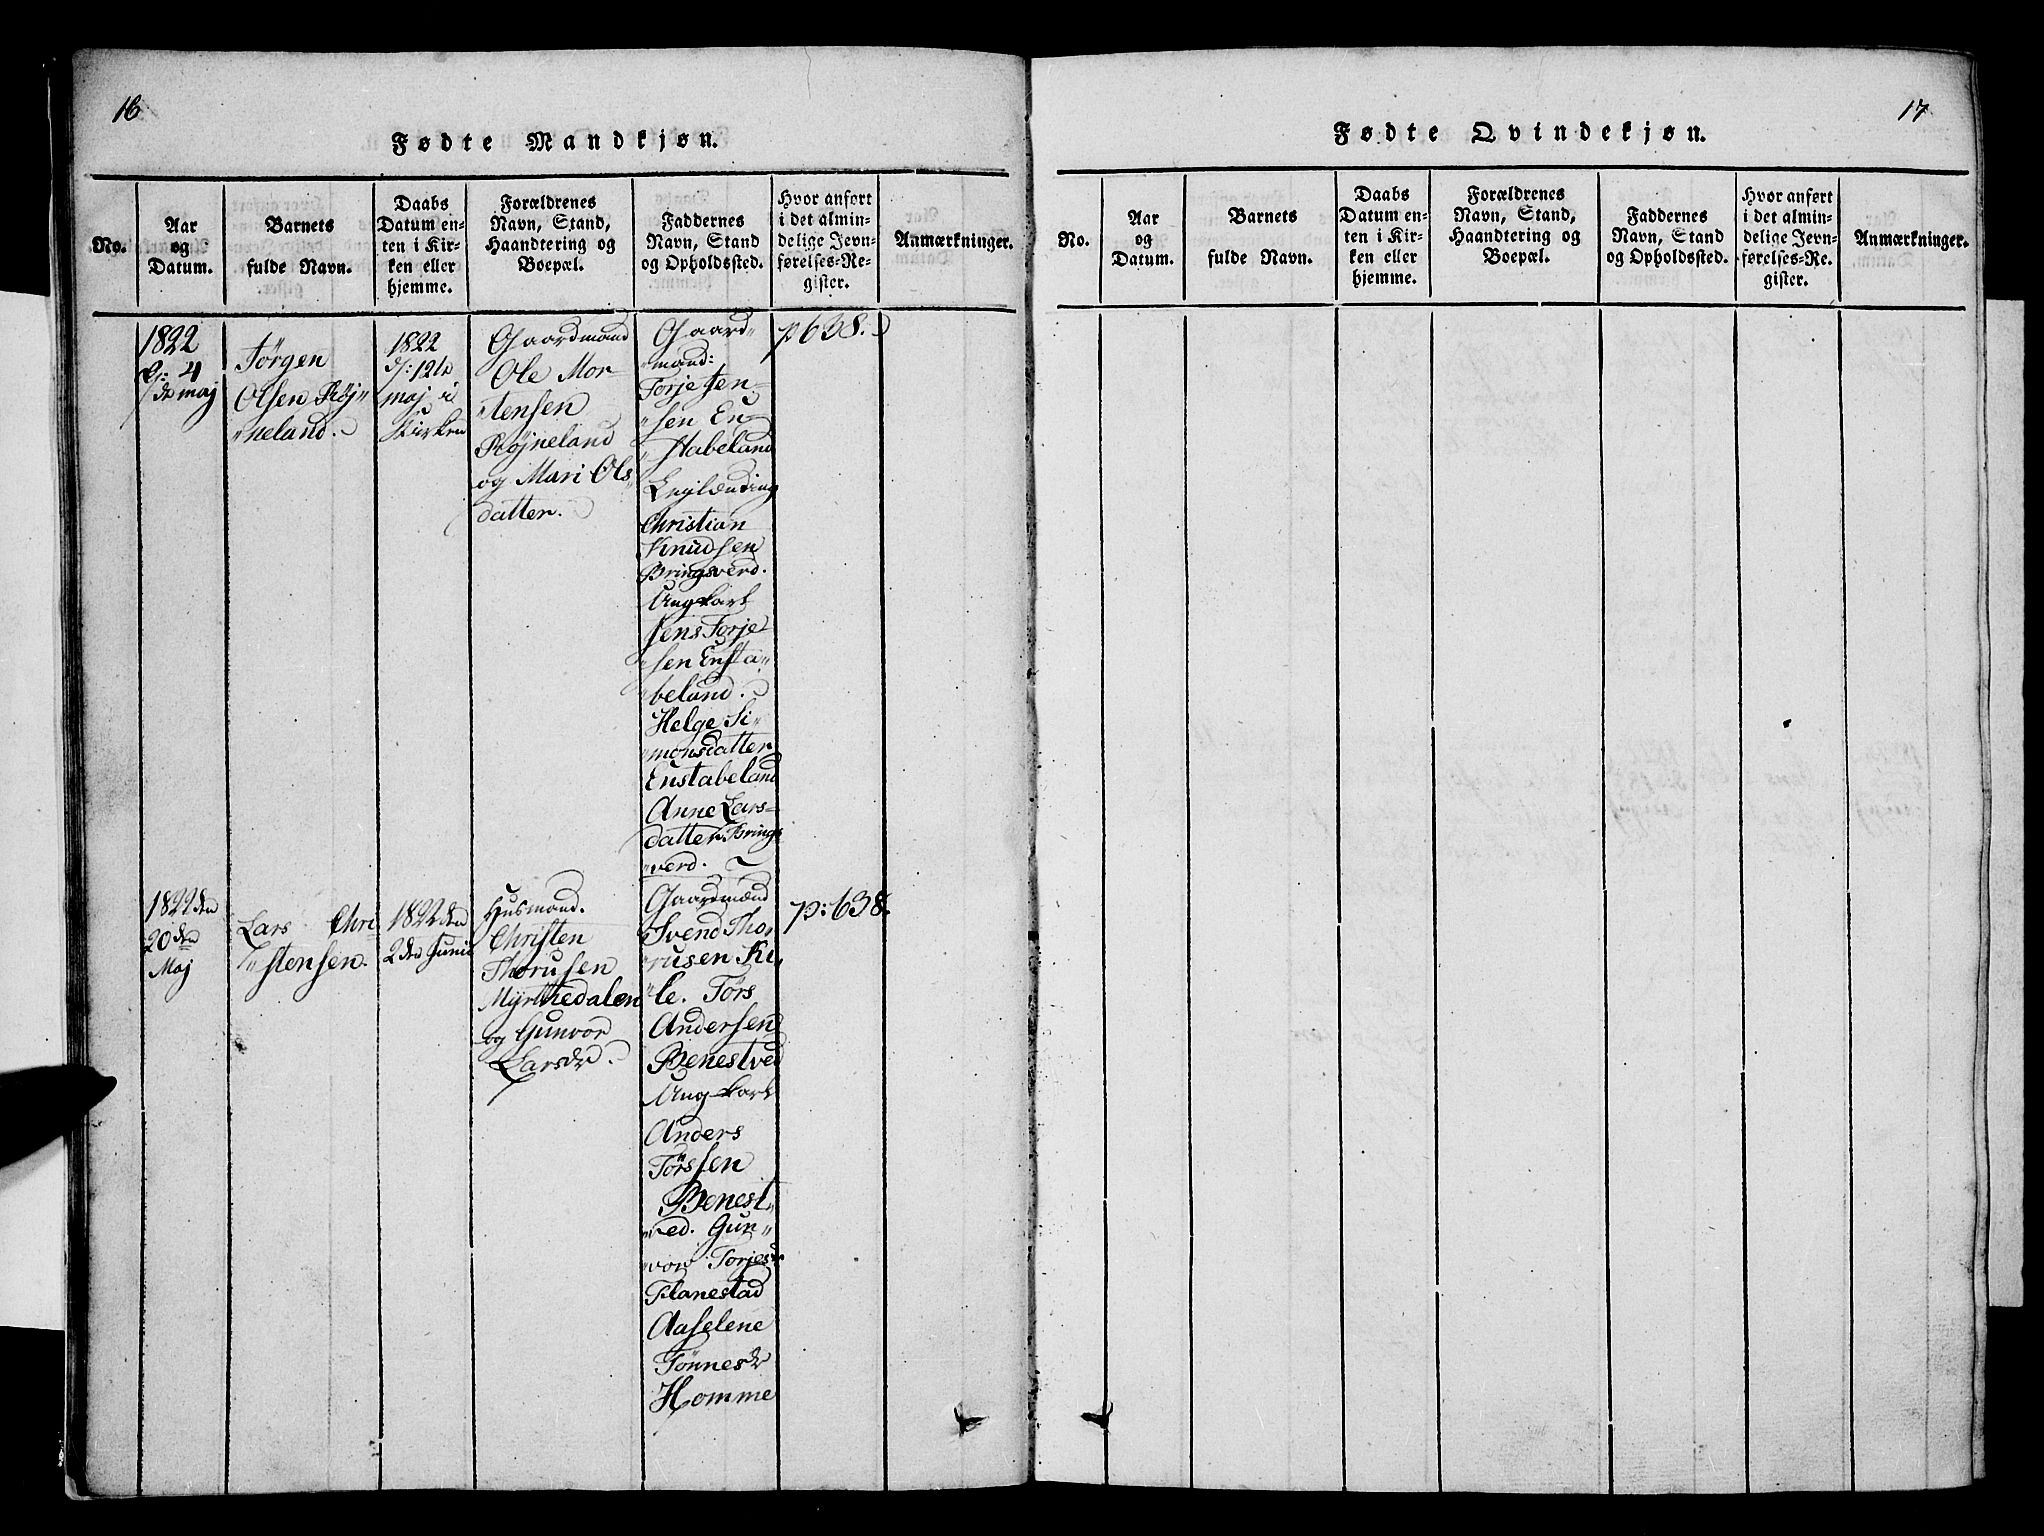 16
Fødte Mandkjøn.
No.
Aar
og
Datum.
Barnets
fulde Navn.
Daabs
Datum en-
ten i Kir-
ken eller
hjemme.
Forældrenes
Navn, Stand,
Haandtering og
Boepæl.
Faddernes
Navn, Stand
og Opholdssted.
Hvor anført
i det almin-
delige Jevn-
førelses-Re-
gister.
Anmærkninger.
1822
d: 4
maj
Jörgen
Olsen Röj„
„neland.
1822
d: 12te
maj i
Kirken
Gaardmand
Ole Mor-
„tensen
Röjneland
og Mari Ols„
datter.
Gaard„
„mand:
Torje Jen-
„sen En-
„stabeland
Leylænding
Christian
Knudsen
Bringsverd.
Ung karl
Jens Torje
„sen Ensta„
„beland.
Helge Si„
„monsdatter
Enstabeland
Anne Lars-
datter Brings
„verd.
p 638.
1822 den
20den
Maj
Lars Chri
„stensen.
1822 den
2den Junii
Husmand.
Christen
Thorusen
Myrthedalen
og Gunvor
Larsdr.
Gaardmænd
Svend Tho„
„rusen Ki„
„le. Törs
Andersen
Benestved
Ung karl
Anders
Törssen
Benest„
„ved. Gun„
„vor Torjesdr
Flanestad
Aaselene
Tönnesdr
Homme
p: 638.
17
Fødte Qvindekjøn.
No.
Aar
og
Datum.
Barnets
fulde Navn.
Daabs
Datum en-
ten i Kir-
ken eller
hjemme.
Forældrenes
Navn, Stand,
Haandtering og
Boepæl.
Faddernes
Navn, Stand
og Opholdssted.
Hvor anført
i det almin-
delige Jevn-
førelses-Re-
gister.
Anmærkninger.